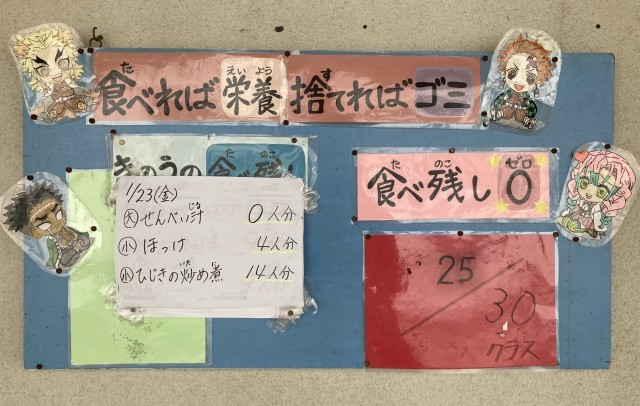 食べれば栄養 捨てればゴミ
た
えい よう
す
きのうの食べ残し
た のこ
1/23(金)
大 せんべい汁 0人分
じる
小 ほっけ 4人分
小 ひじきの炒め煮 14人分
いた に
食べ残し0
た のこ ゼロ
25/30
クラス